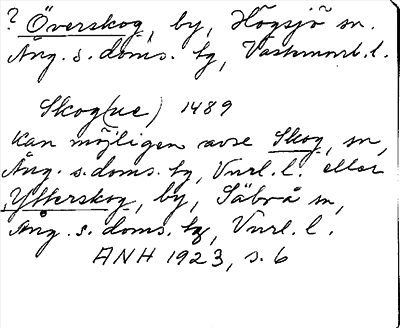 ? Överskog, by, Högsjö sn.
Ång. s. doms. tg, Västernorrl. l.
Skog(ue) 1489
Kan möjligen avse Skog, sn,
Ång. s. doms. tg, Vnrl. l. eller
Ytterskog, by, Säbrå sn,
Ång. s. doms. tg, Vnrl. l.
ANH 1923, s. 6